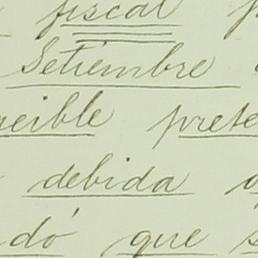 fiscal
Setiembre
eible prete
debida
dó que s